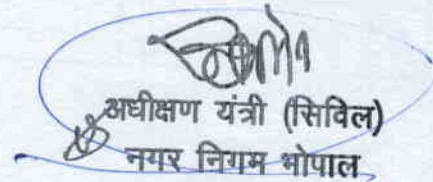 अधीक्षण यंत्री (सिविल)
नगर निगम भोपाल